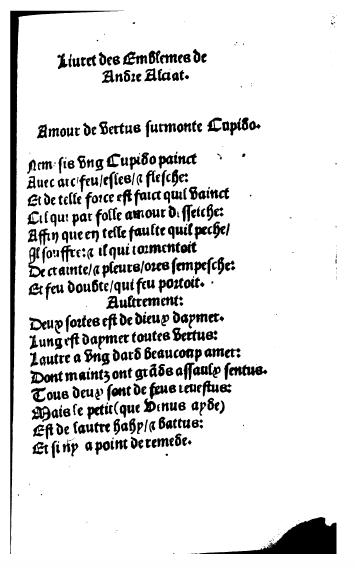 Liuret des Emblemes de
Andre Alciat.
Amour de vertus surmonte Cupido.
Nem sis vng Cupido painct
Auec arc/feu/esles/⁊ flesche:
Et de telle force est faict quil vainct
Cil qui par folle amour d seiche:
Affin que en telle faulte quil peche/
Il souffre: ⁊ il qui tormentoit
De crainte/⁊ pleurs/ores sempesche:
Et feu doubte/qui feu portoit.
Aultrement:
Deux sortes est de dieux daymer.
Lung est daymer toutes vertus:
Lautre a vng dard beaucoup amer:
Dont maintz ont grãds assaulx sentus.
Tous deux sont de feus reuestus:
Mais le petit (que Venus ayde)
Est de lautre hahy/⁊ battus:
Et si ny a point de remede.